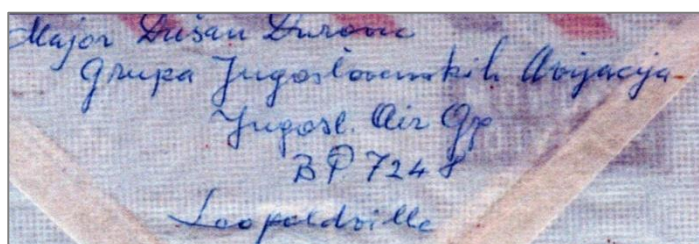 Major Dušan Durovic
Grupa Jugoslovenskih Avijacija
Jugosl. Air Gp
BP 7248
Leopoldville